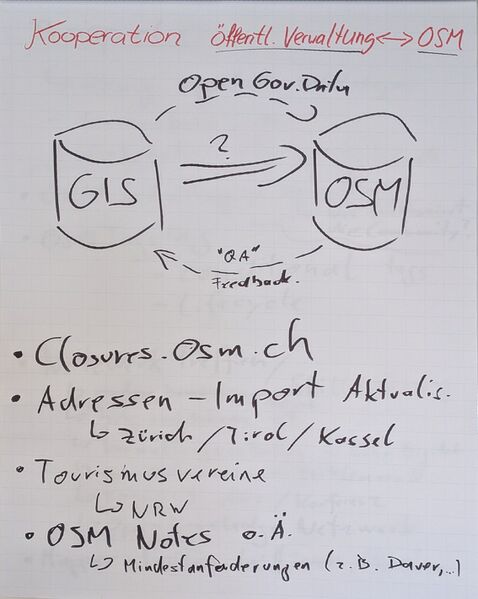 Kooperation öffentl. Verwaltung <-> OSM
Open Gov. Data
?
GIS
OSM
"QA"
Feedback.
• Closures.osm.ch
• Adressen - Import Aktualis.
↳ Zürich / Tirol / Kassel
• Tourismusvereine
↳ NRW
• OSM Notes o.Ä.
↳ Mindestanforderungen (z.B. Dauer,...)